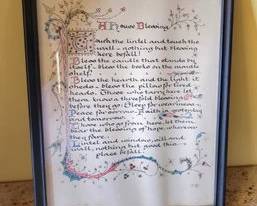 A House Blessing
Touch the lintel and touch the
wall - nothing but blessing
here befall!
Bless the candle that stands by
itself - bless the books on the mantle
shelf.
Bless the hearth and the light it
sheds - bless the pillow for tired
heads. Those who tarry here let
them know a threefold blessing
before they go: Sleep for weariness -
Peace for sorrow - Faith in yesterday
and tomorrow.
Those who go from here let them
bear the blessing of hope wherever
they fare.
Lintel and window, sill and
wall, nothing but good this
place befall!